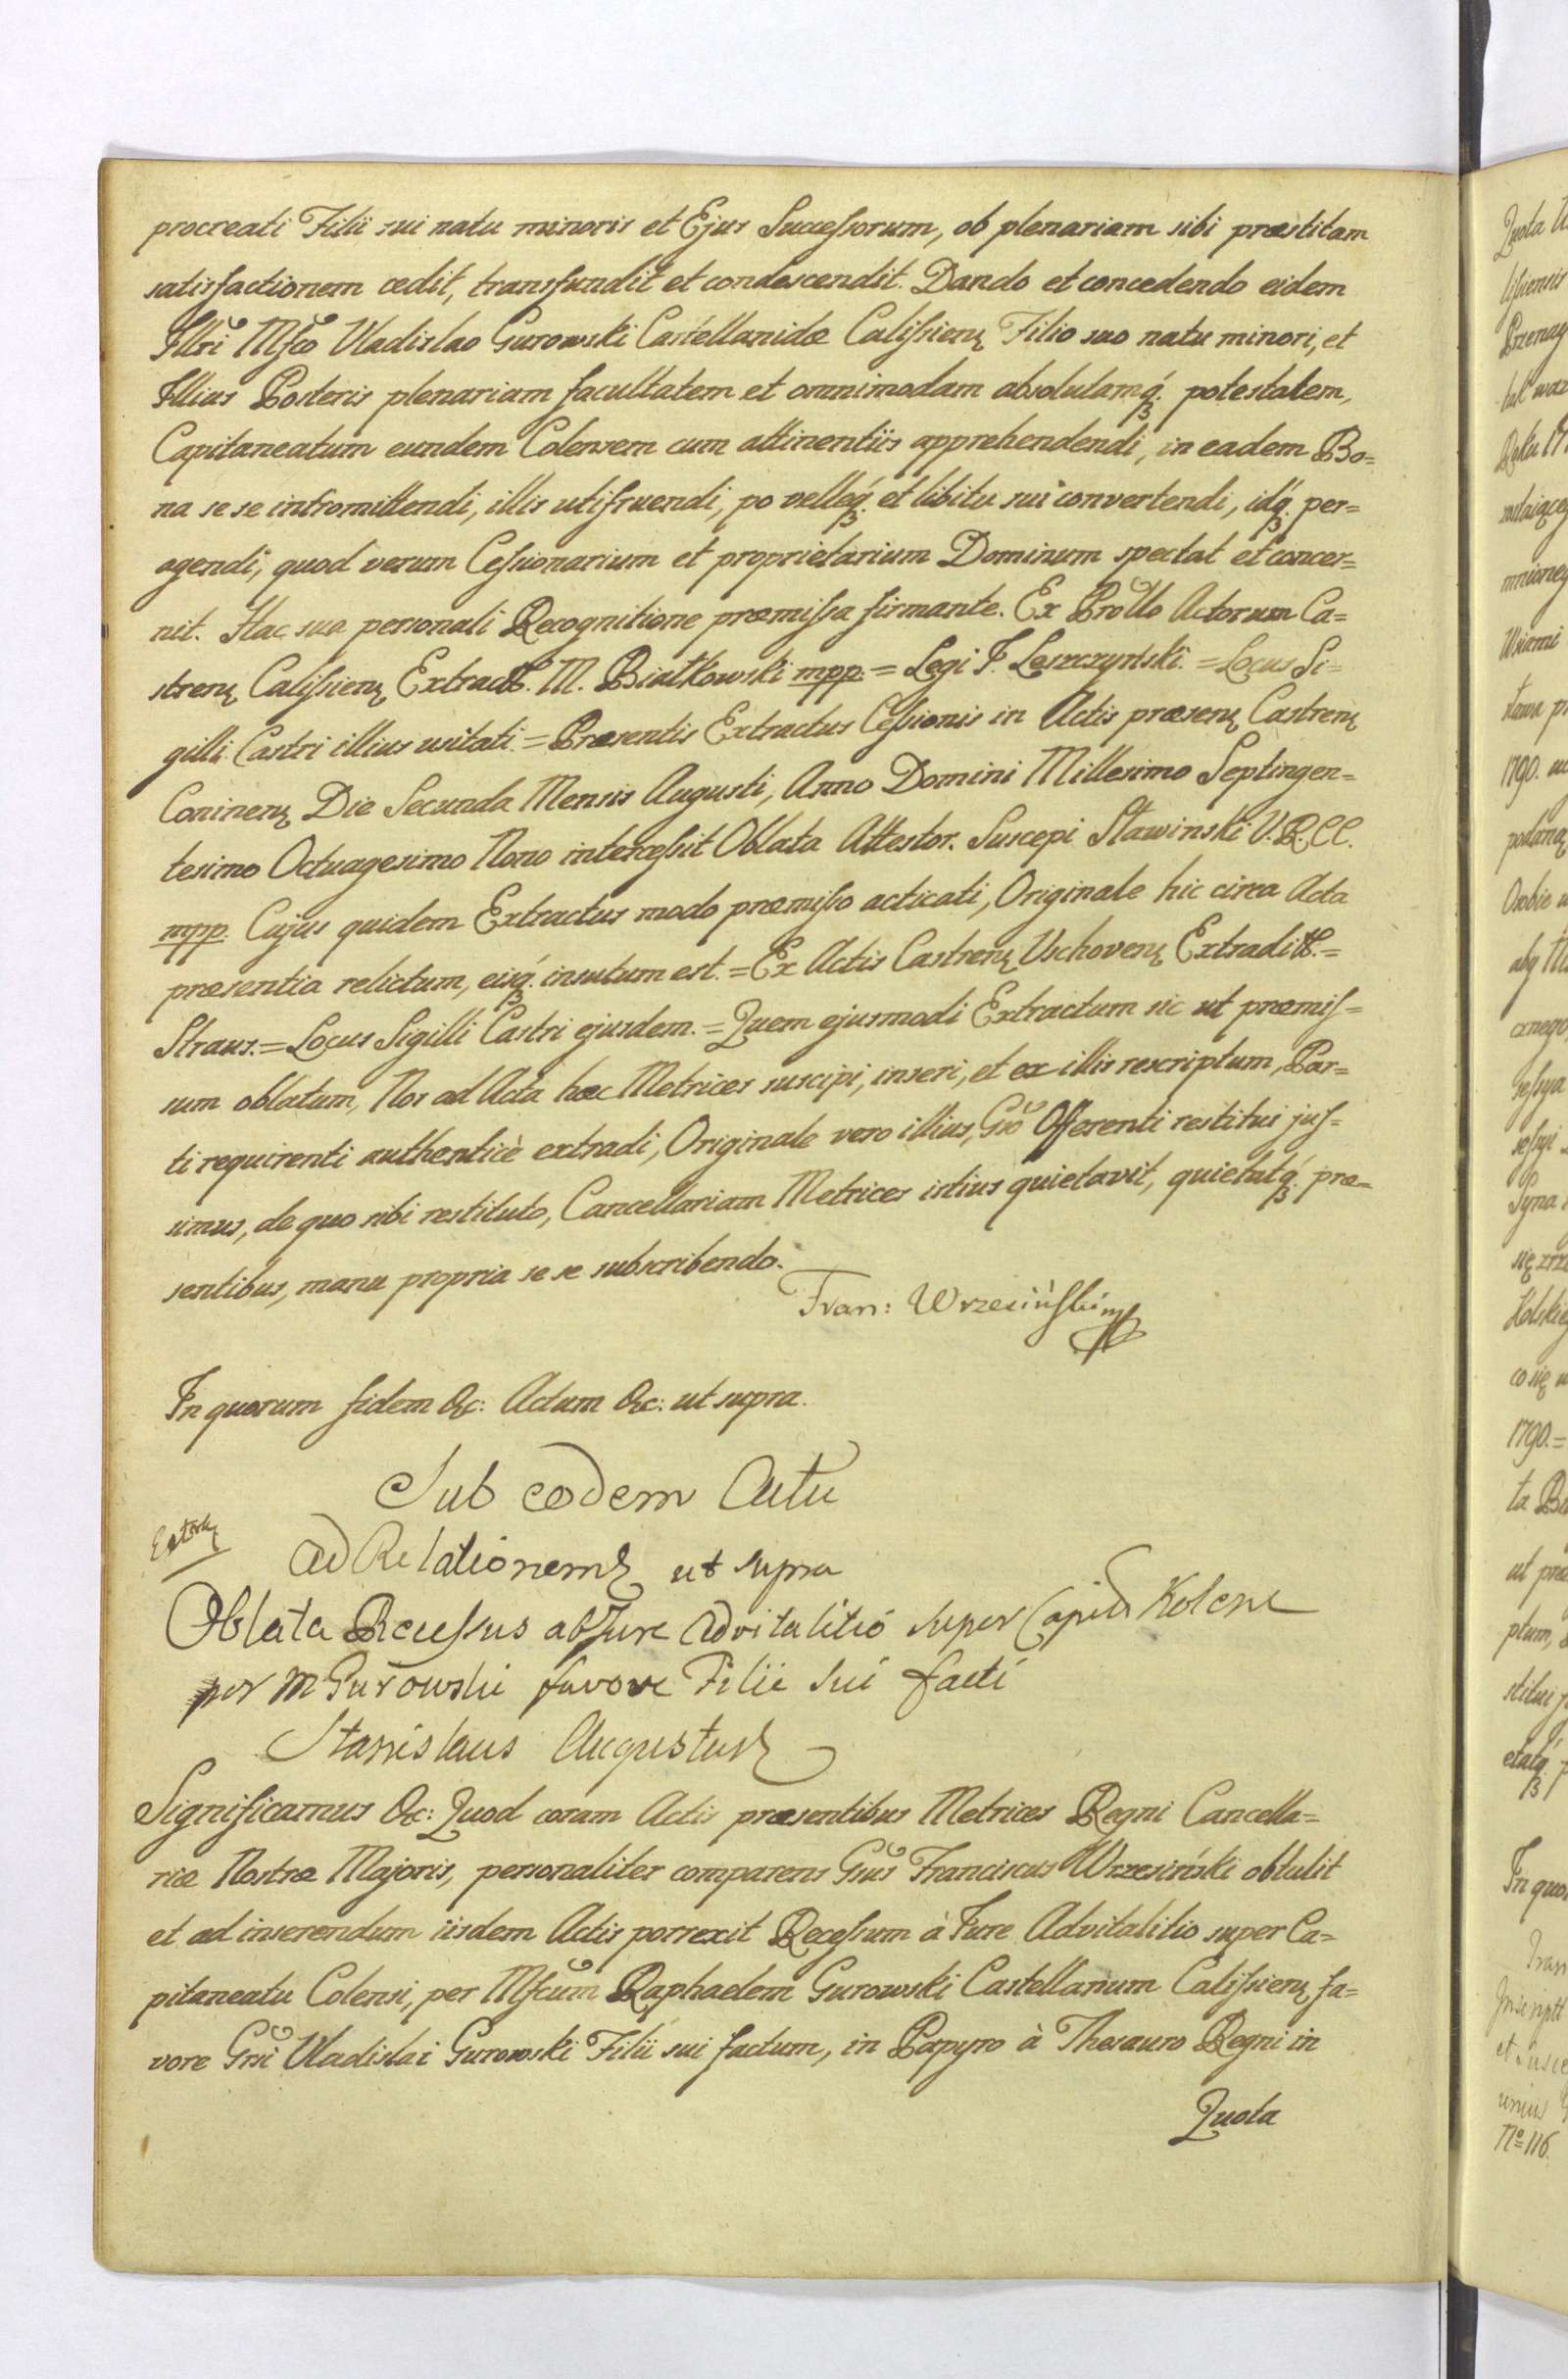 procreati Filii sui natu minoris et Ejus Succeſsorum, ob plenariam sibi præstitam
satisfactionem cedit, transfundit et condescendit. Dando et concedendo eidem
Illri Mfco Vladislao Gurowski Castellanidæ Caliſsienꝫ Filio suo natu minori, et
Illius Posteris plenariam facultatem et omnimodam absolutamq́ꝫ. potestatem,
Capitaneatum eundem Colensem cum attinentiis apprehendendi, in eadem Bo=
na se se intromittendi, illis utifruendi, po velleq́ꝫ. et libitu sui convertendi, idq́ꝫ. per=
agendi, quod verum Ceſsionarium et proprietarium Dominum spectat et concer=
nit. Hac sua personali Recognitione præmiſsa firmante. Ex Prollo Actorum Ca=
strenꝫ Caliſsienꝫ Extradtt. M. Białkowski mpp. = Legi J. Leszczyński. = Locus Si=
gilli Castri illius usitati. = Præsentis Extractus Ceſsionis in Actis præsenꝫ Castrenꝫ
Coninenꝫ Die Secunda Mensis Augusti, Anno Domini Millesimo Septingen=
tesimo Octuagesimo Nono interceſsit Oblata Attestor. Suscepi Sławinski V. R. CC.
mpp. Cujus quidem Extractus modo præmiſso acticati, Originale hic circa Acta
præsentia relictum, eisq́ꝫ. insutum est. = Ex Actis Castrenꝫ Vschovenꝫ Extraditt. =
Straus. = Locus Sigilli Castri ejusdem. = Quem ejusmodi Extractum sic ut præmiſ=
sum oblatum, Nos ad Acta hæc Metrices suscipi, inseri, et ex illis rescriptum, Par=
ti requirenti authenticè extradi, Originale vero illius, Gño Offerenti restitui juſ=
simus, de quo sibi restituto, Cancellariam Metrices istius quietavit, quietatq́ꝫ. præ=
sentibus, manu propria se se subscribendo.
Fran: Wrzesiński mp
In quorum fidem &c: Actum &c: ut supra.
Sub eodem Actu
ad Relationem ut supra
Oblata Receſsus ab Jure Advitalitio super Capitu Kolens
per M Gurowski favore Filii sui facti
Stanislaus Augustus
Significamus &c: Quod coram Actis præsentibus Metrices Regni Cancella=
riæ Nostræ Majoris, personaliter comparens Gñus Franciscus Wrzesiński obtulit
et ad inserendum iisdem Actis porrexit Receſsum à Jure Advitalitio super Ca=
pitaneatu Colensi, per Mfcum Raphaelem Gurowski Castellanum Caliſsienꝫ, fa=
vore Gñi Vladislai Gurowski Filii sui factum, in Papyro à Thesauro Regni in
Quota